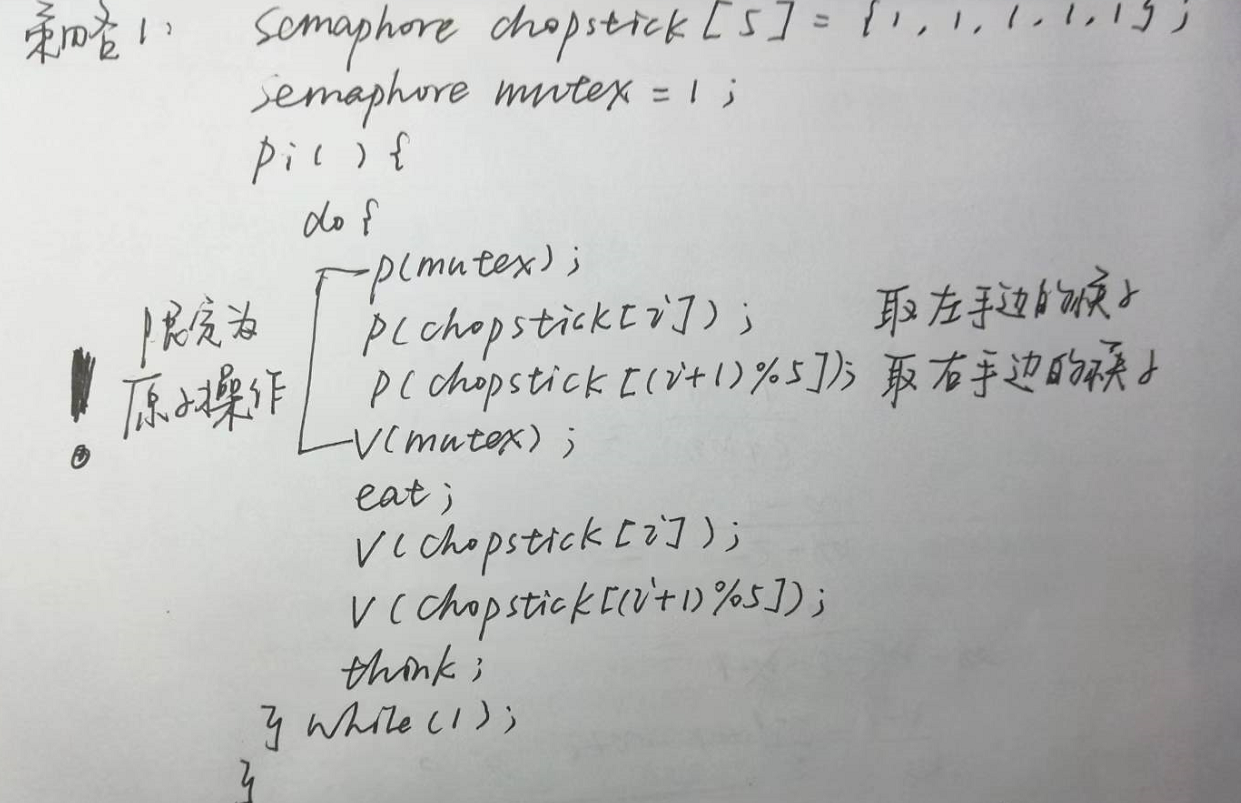 策略1: semaphore chopstick[5] = {1,1,1,1,1};
semaphore mutex = 1;
pi(){
do{
p(mutex);
p(chopstick[i]); 取左手边的筷子
限定为
p(chopstick[(i+1)%5]); 取右手边的筷子
! 原子操作
V(mutex);
eat;
V(chopstick[i]);
V(chopstick[(i+1)%5]);
think;
} while(1);
}